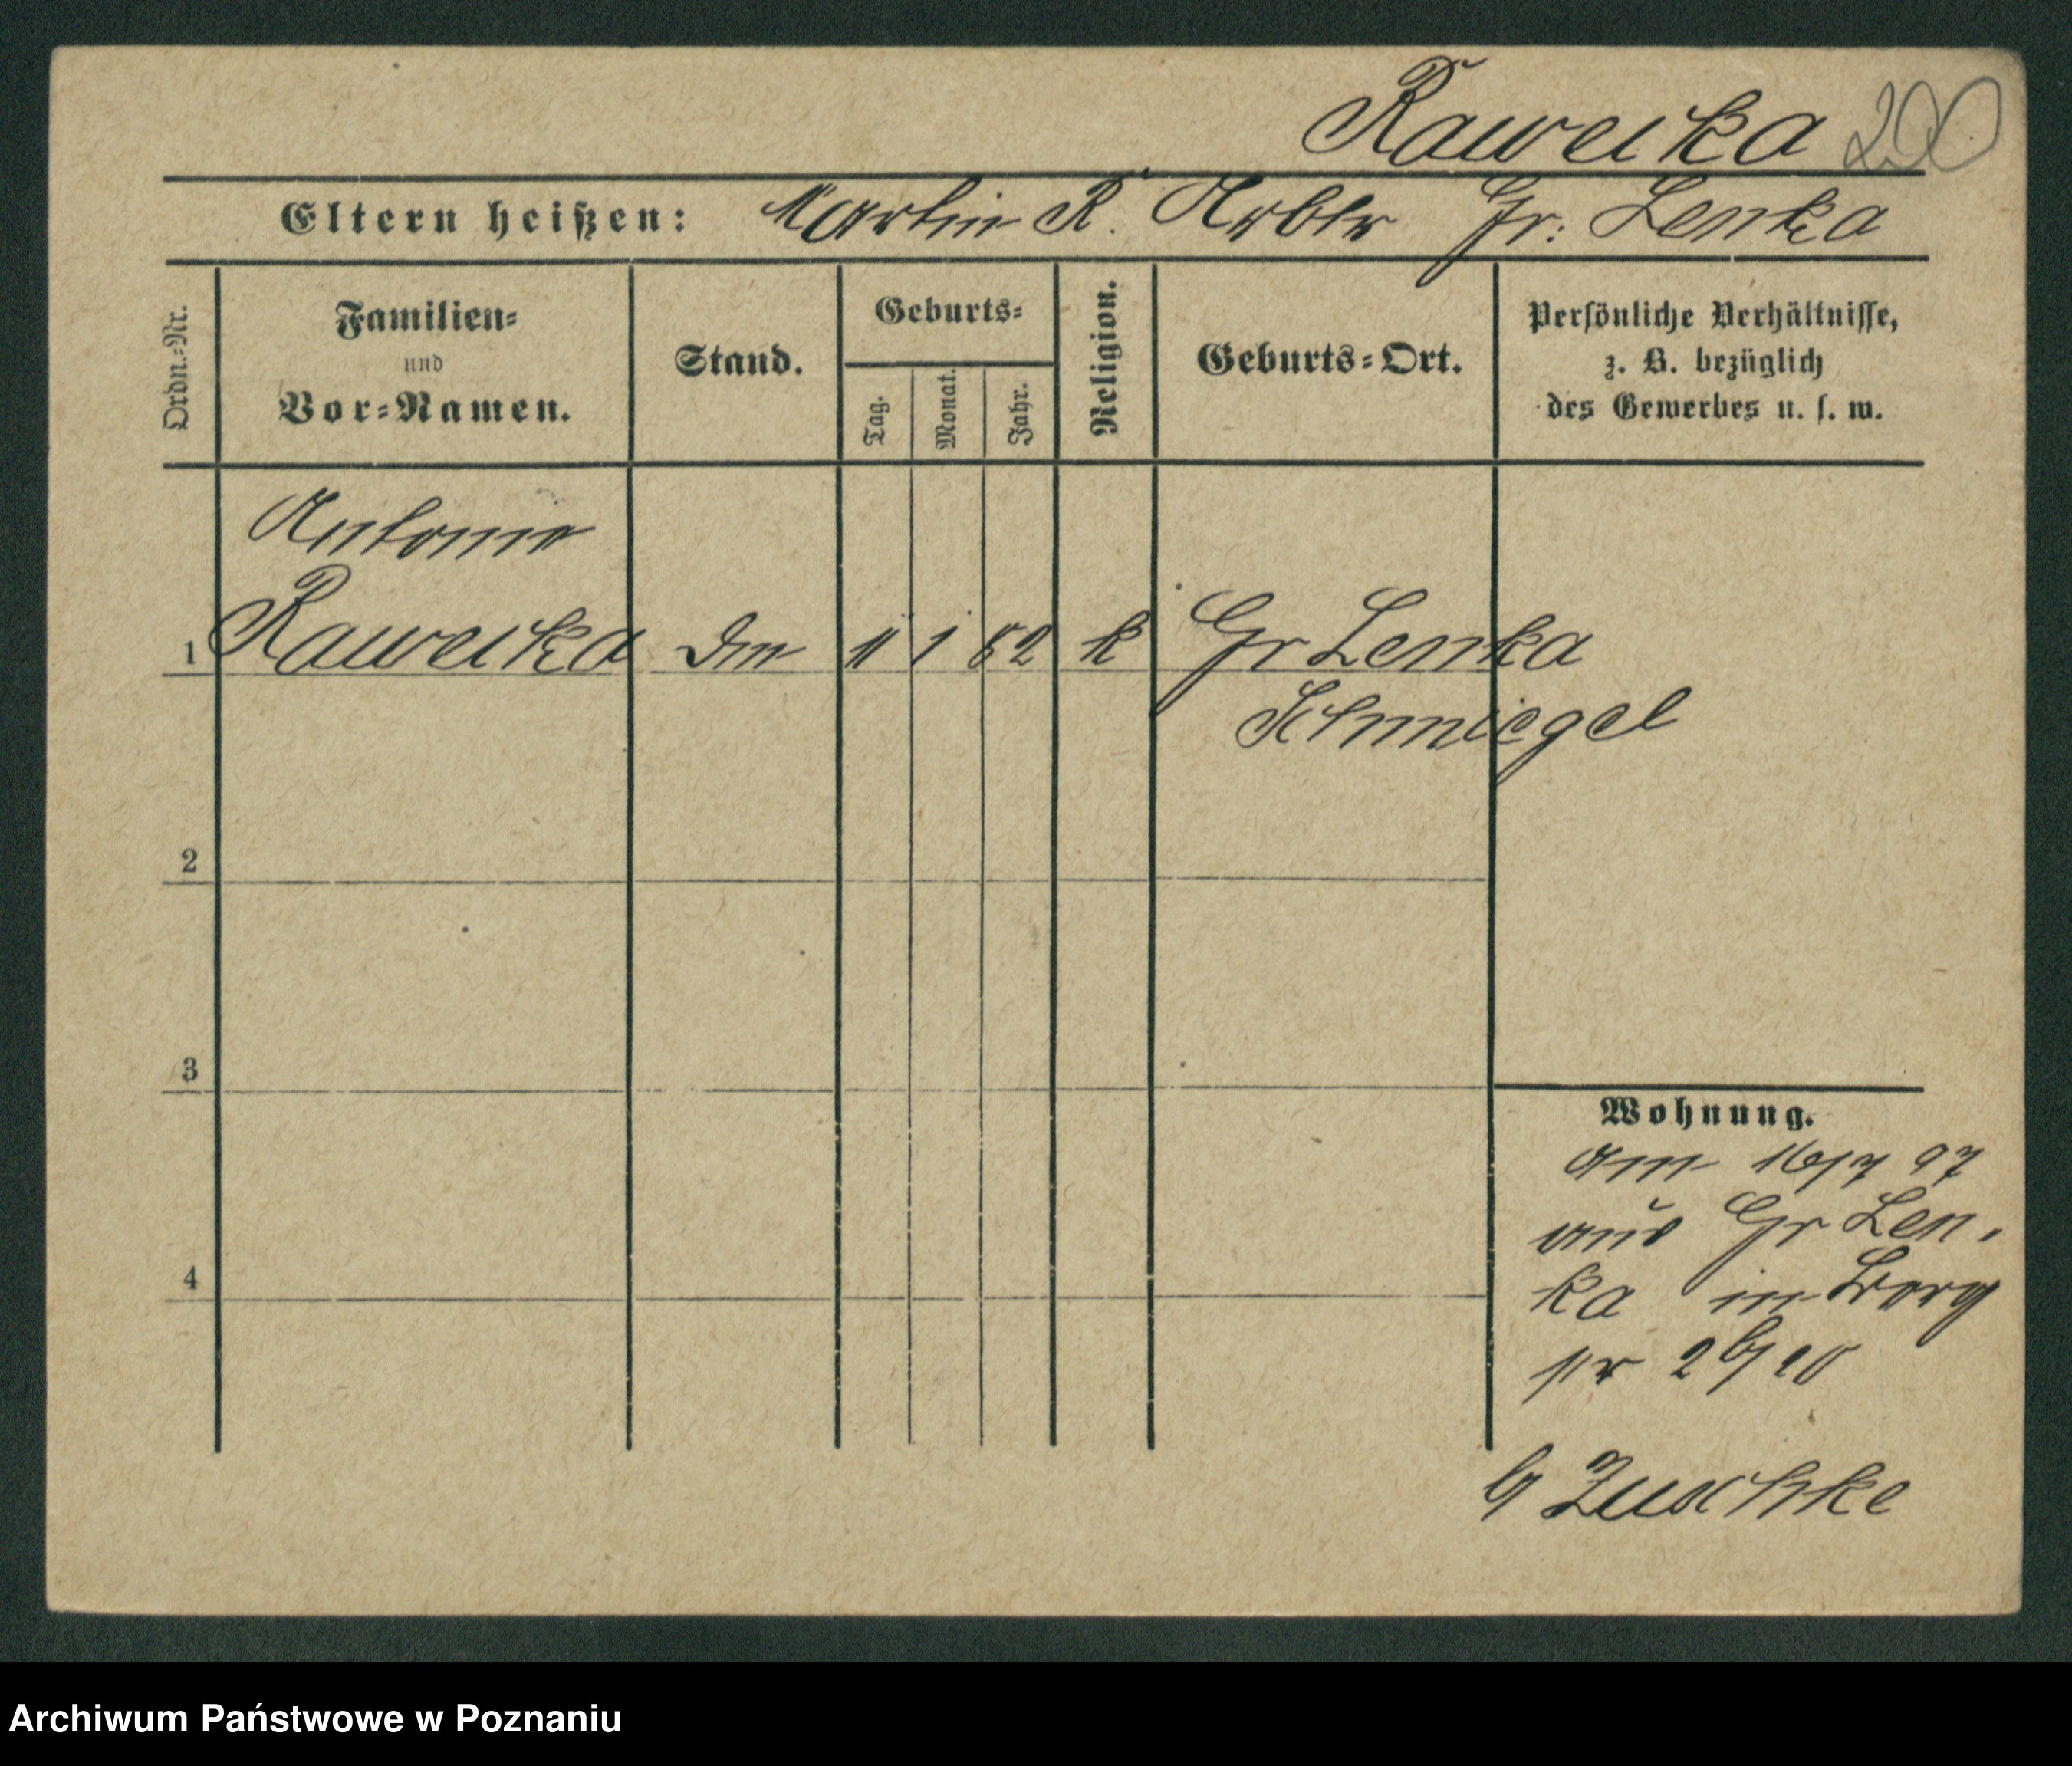 Raweika 200
Eltern heißen: Martin R. Arbtr Gr: Lenka
Ordn.-Nr.
Familien-
und
Vor-Namen.
Stand.
Geburts-
Tag.
Monat.
Jahr.
Religion.
Geburts-Ort.
Persönliche Verhältnisse,
z. B. bezüglich
des Gewerbes u. s. w.
Antonie
1 Raweika 11 1 82 k Gr Lenka
Schmiegel
2
3
4
Wohnung.
am 16/7 97
aus Gr Len-
ka in
b Zuschke
Archiwum Państwowe w Poznaniu